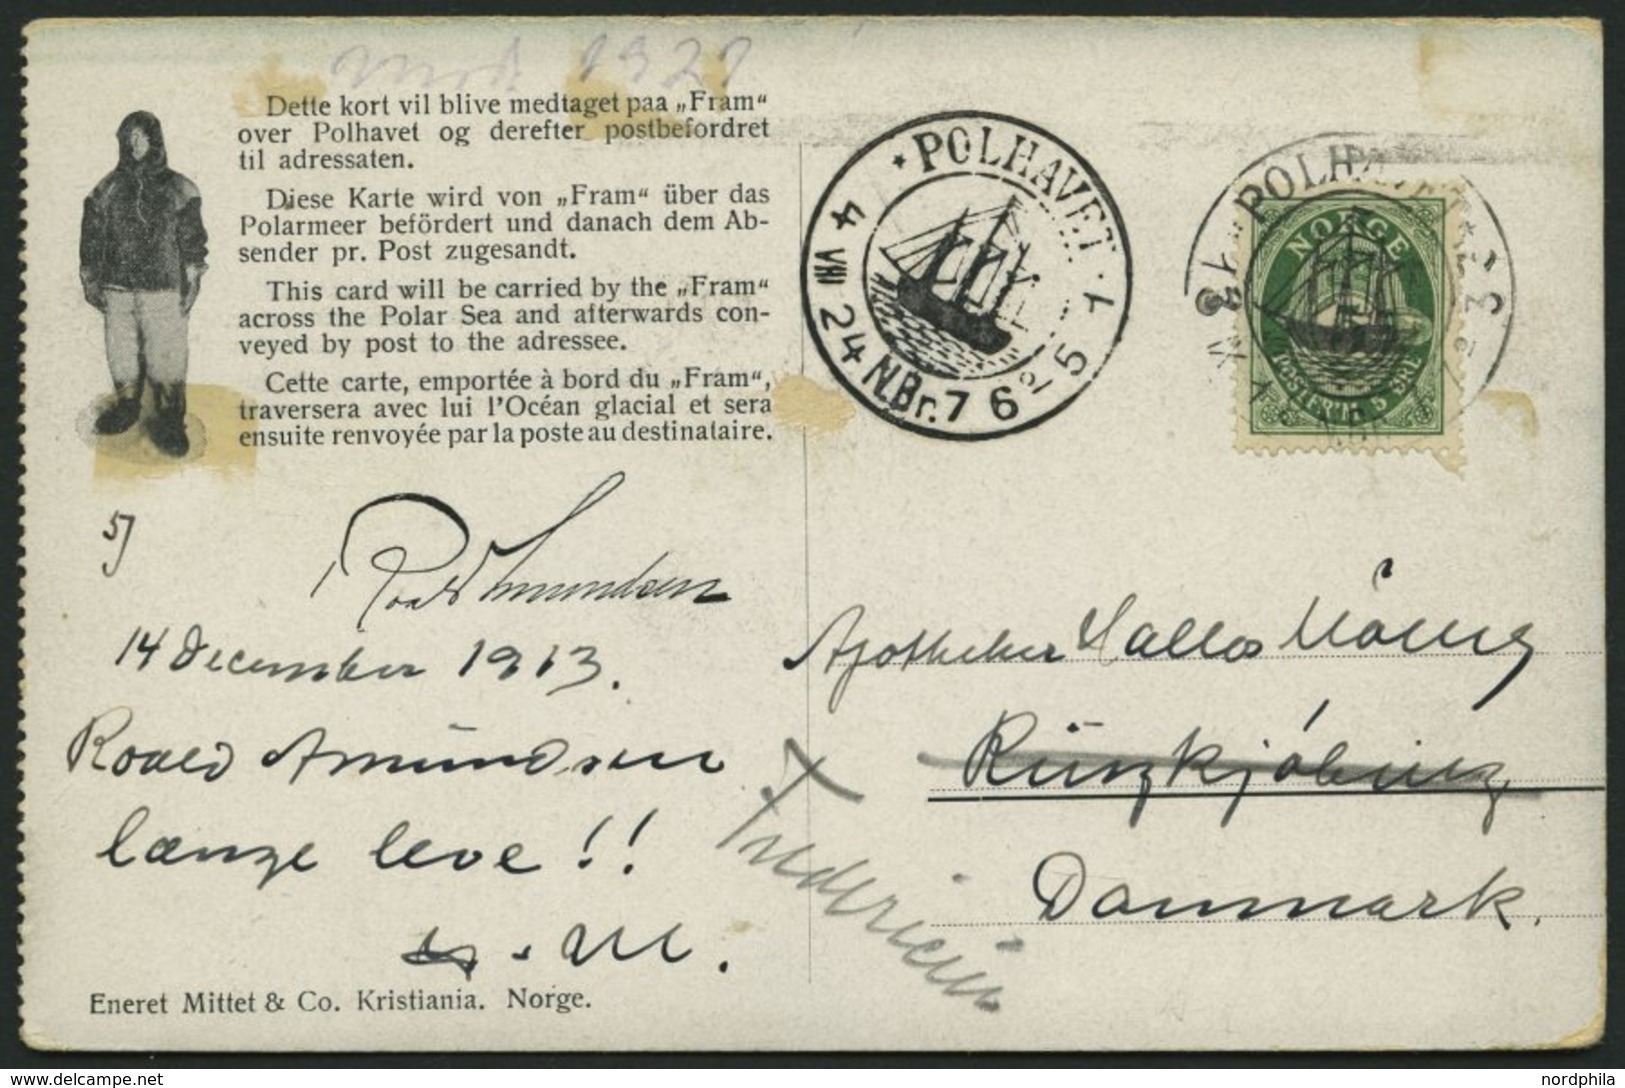 1921
Dette kort vil blive medtaget paa „Fram“
over Polhavet og derefter postbefordret
til adressaten.
Diese Karte wird von „Fram“ über das
Polarmeer befördert und danach dem Ab-
sender pr. Post zugesandt.
This card will be carried by the „Fram“
across the Polar Sea and afterwards con-
veyed by post to the adressee.
Cette carte, emportée à bord du „Fram“,
traversera avec lui l'Océan glacial et sera
ensuite renvoyée par la poste au destinataire.
* POLHAVET
4 VIII 24 N.Br. 76° 51
POLHAVET
NORGE
5
POSTFRIM 5 ØRE
5)
Roald Amundsen
14 December 1913.
Roald Amundsen
længe leve!!
M.
Apotheker
Ringkjøbing
Danmark.
Fredericia
Eneret Mittet & Co. Kristiania. Norge.
nordphila